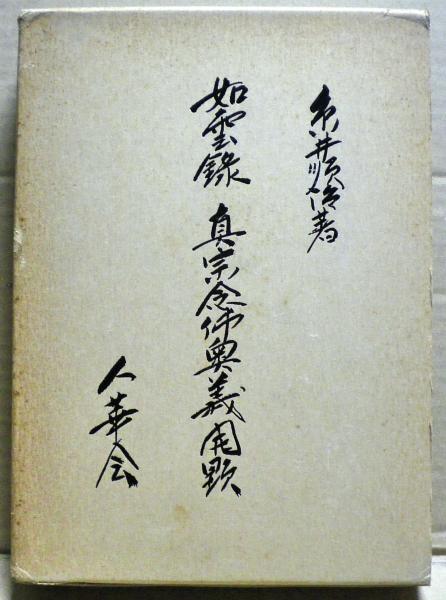 糸井順治著
如雲録 真宗念仏奥義開顕
人華会